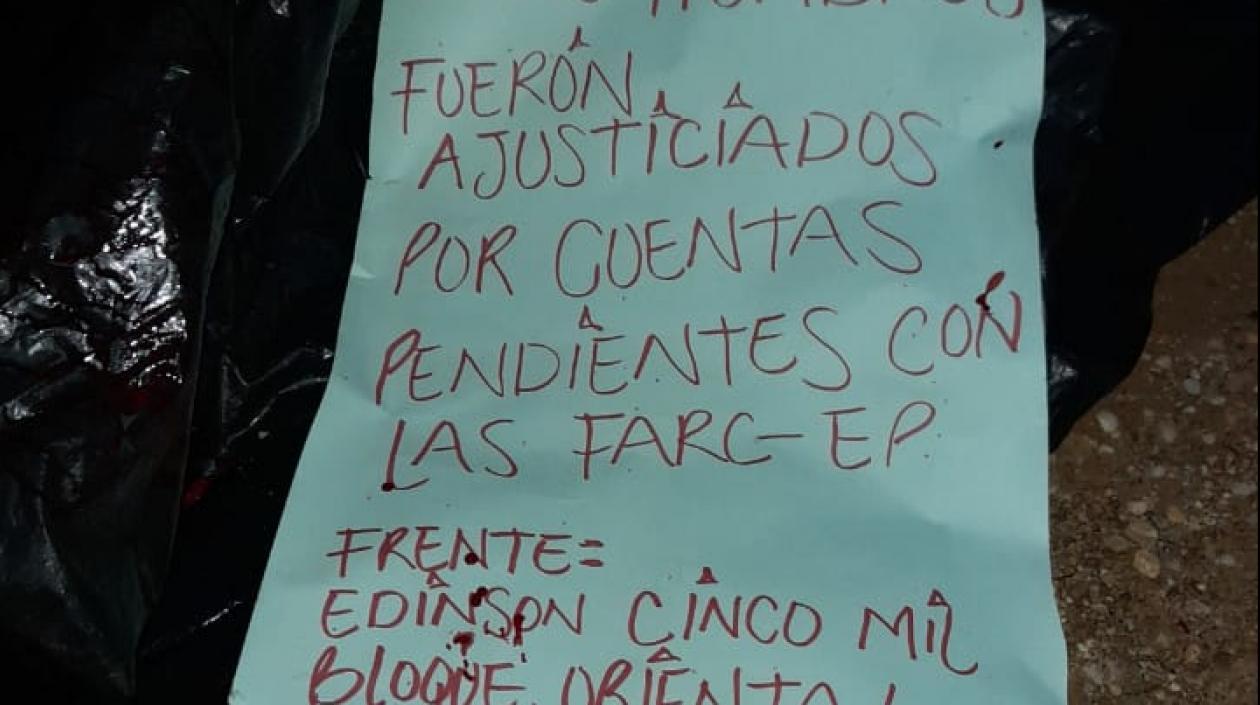 FUERÓN
AJUSTICIADOS
POR CUENTAS
PENDIENTES CON
LAS FARC-EP
FRENTE=
EDINSON CINCO MIL
BLOQUE ORIENTAL